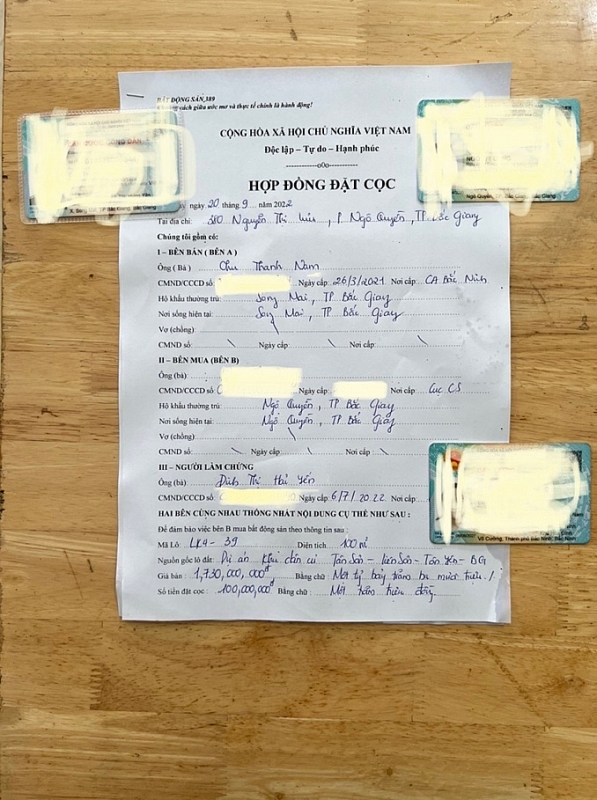 BẤT ĐỘNG SẢN 389
cách giữa ước mơ và thực tế chính là hành động!
CỘNG HÒA XÃ HỘI CHỦ NGHĨA VIỆT NAM
Độc lập – Tự do – Hạnh phúc
-----------o0o-----------
HỢP ĐỒNG ĐẶT CỌC
ngày 20 tháng 9 năm 2022
Tại địa chỉ: 380 Nguyễn Thị Lưu, P Ngô Quyền, TP. Bắc Giang
Chúng tôi gồm có:
I – BÊN BÁN ( BÊN A )
Ông ( Bà ) Chu Thanh Nam
CMND/CCCD số Ngày cấp 26/3/2021 Nơi cấp CA Bắc Ninh
Hộ khẩu thường trú: Song Mai, TP Bắc Giang
Nơi sống hiện tại: Song Mai, TP Bắc Giang
Vợ (chồng)
CMND số: Ngày cấp Nơi cấp:
II – BÊN MUA (BÊN B)
Ông (bà):
CMND/CCCD số Ngày cấp Nơi cấp Cục CS
Hộ khẩu thường trú: Ngô Quyền, TP Bắc Giang
Nơi sống hiện tại: Ngô Quyền, TP Bắc Giang
Vợ (chồng)
CMND số: Ngày cấp Nơi cấp
III – NGƯỜI LÀM CHỨNG
Ông (bà) Đinh Thị Hải Yến
CMND/CCCD số Ngày cấp 6/7/2022 Nơi cấp
HAI BÊN CÙNG NHAU THỐNG NHẤT NỘI DUNG CỤ THỂ NHƯ SAU :
Để đảm bảo việc bên B mua bất động sản theo thông tin sau :
Mã Lô : LK4 - 39 Diện tích 100 m²
Nguồn gốc lô đất: Dự án khu dân cư Tân Sơn - Liên Sơn - Tân Yên - BG
Giá bán : 1,730,000,000đ Bằng chữ Một tỷ bảy trăm ba mươi triệu /
Số tiền đặt cọc : 100,000,000đ Bằng chữ : Một trăm triệu đồng
Võ Cường, Thành phố Bắc Ninh, Bắc Ninh